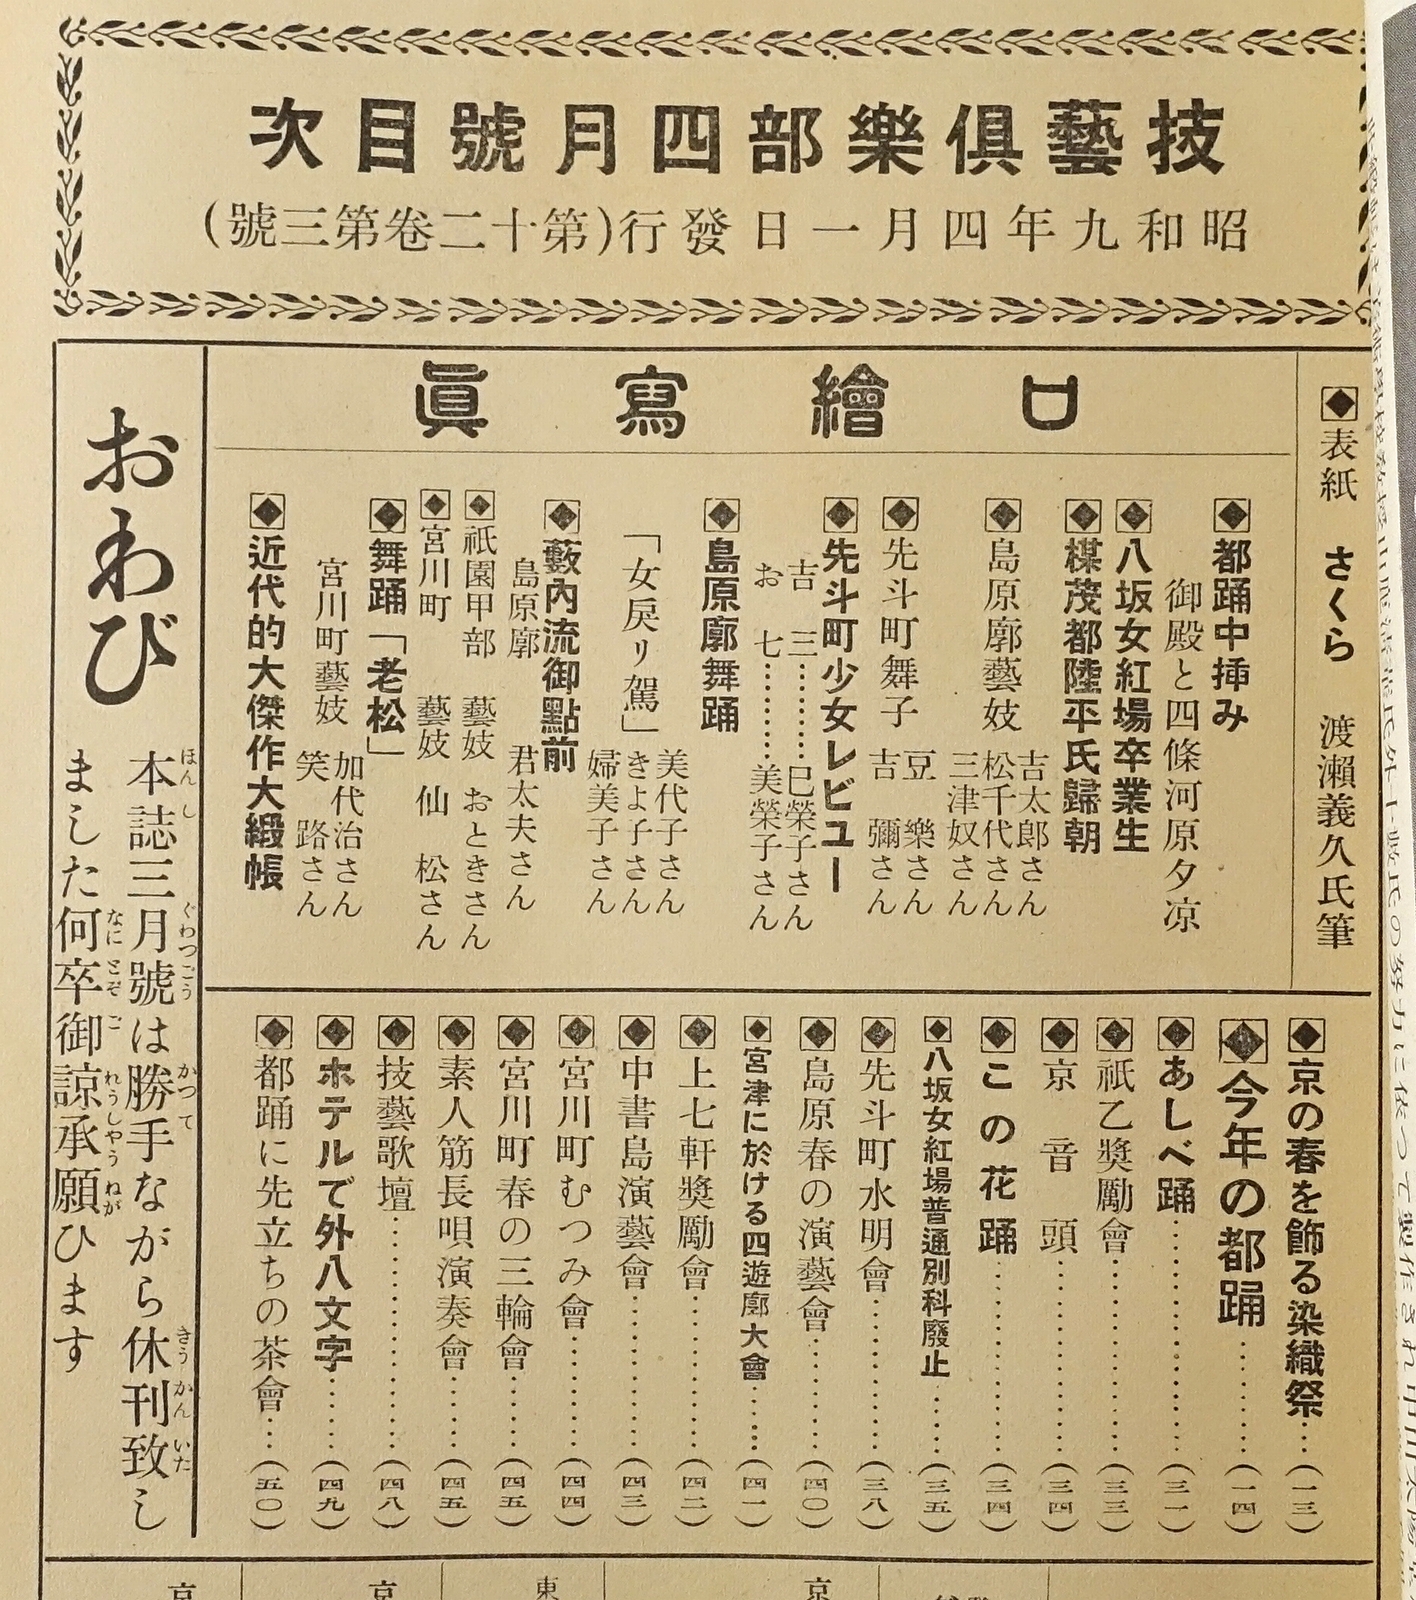 技藝俱樂部四月號目次
昭和九年四月一日發行(第十二卷第三號)
◆表紙 さくら 渡瀨義久氏筆
口繪寫眞
◆都踊中挿み
御殿と四條河原夕凉
◆八坂女紅場卒業生
◆楳茂都陸平氏歸朝
◆島原廓藝妓 吉太郎さん
松千代さん
三津奴さん
◆先斗町舞子 豆樂さん
吉彌さん
◆先斗町少女レビユー
吉三……巳榮子さん
お七……美榮子さん
◆島原廓舞踊
「女戾リ駕」 美代子さん
きよ子さん
婦美子さん
◆藪內流御點前
島原廓 君太夫さん
◆祇園甲部 藝妓 おときさん
◆宮川町 藝妓 仙松さん
◆舞踊「老松」
宮川町藝妓 加代治さん
笑路さん
◆近代的大傑作大緞帳
◆京の春を飾る染織祭…(一三)
◆今年の都踊……(一四)
◆あしべ踊……(三一)
◆祇乙奬勵會……(三三)
◆京音頭……(三四)
◆この花踊……(三四)
◆八坂女紅場普通別科廢止……(三五)
◆先斗町水明會……(三八)
◆島原春の演藝會……(四〇)
◆宮津に於ける四遊廓大會……(四一)
◆上七軒奬勵會……(四二)
◆中書島演藝會……(四三)
◆宮川町むつみ會……(四四)
◆宮川町春の三輪會……(四五)
◆素人筋長唄演奏會……(四五)
◆技藝歌壇……(四八)
◆ホテルで外八文字……(四九)
◆都踊に先立ちの茶會…(五〇)
おわび
本誌三月號は勝手ながら休刊致し
ほんし ぐわつごう かつて きうかんいた
ました何卒御諒承願ひます
なにとぞ ご れうしやうねが
京
東
京
京